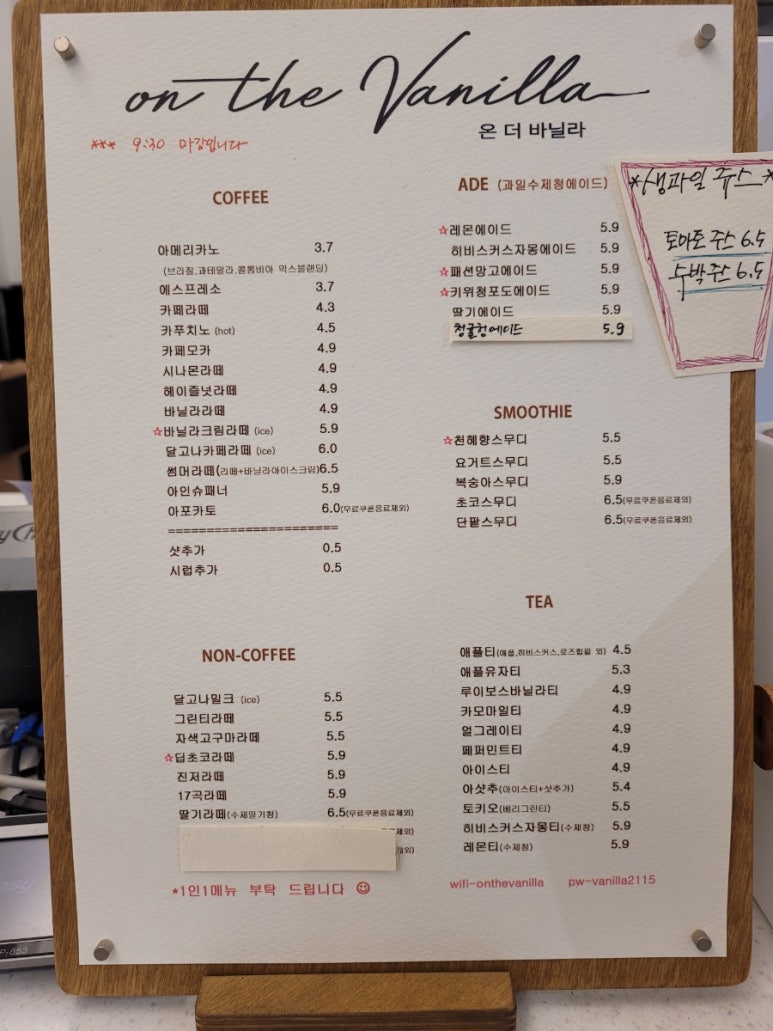 on the Vanilla
온 더 바닐라
*** 9:30 마감입니다
COFFEE
아메리카노 3.7
(브라질,과테말라,콜롬비아 믹스블랜딩)
에스프레소 3.7
카페라떼 4.3
카푸치노 (hot) 4.5
카페모카 4.9
시나몬라떼 4.9
헤이즐넛라떼 4.9
바닐라라떼 4.9
☆바닐라크림라떼 (ice) 5.9
달고나카페라떼 (ice) 6.0
썸머라떼(라떼+바닐라아이스크림)6.5
아인슈패너 5.9
아포카토 6.0(무료쿠폰음료제외)
======================
샷추가 0.5
시럽추가 0.5
NON-COFFEE
달고나밀크 (ice) 5.5
그린티라떼 5.5
자색고구마라떼 5.5
☆딥초코라떼 5.9
진저라떼 5.9
17곡라떼 5.9
딸기라떼(수제딸기청) 6.5(무료쿠폰음료제외)
제외)
제외)
*1인1메뉴 부탁 드립니다 ☺
ADE (과일수제청에이드)
☆레몬에이드 5.9
히비스커스자몽에이드 5.9
☆패션망고에이드 5.9
☆키위청포도에이드 5.9
딸기에이드 5.9
청귤청에이드 5.9
*생과일 쥬스*
토마토 주스 6.5
수박주스 6.5
SMOOTHIE
☆천혜향스무디 5.5
요거트스무디 5.5
복숭아스무디 5.9
초코스무디 6.5(무료쿠폰음료제외)
단팥스무디 6.5(무료쿠폰음료제외)
TEA
애플티(애플,히비스커스,로즈힙럴 외) 4.5
애플유자티 5.3
루이보스바닐라티 4.9
카모마일티 4.9
얼그레이티 4.9
페퍼민트티 4.9
아이스티 4.9
아샷추(아이스티+샷추가) 5.4
토키오(베리그린티) 5.5
히비스커스자몽티(수제청) 5.9
레몬티(수제청) 5.9
wifi-onthevanilla pw-vanilla2115